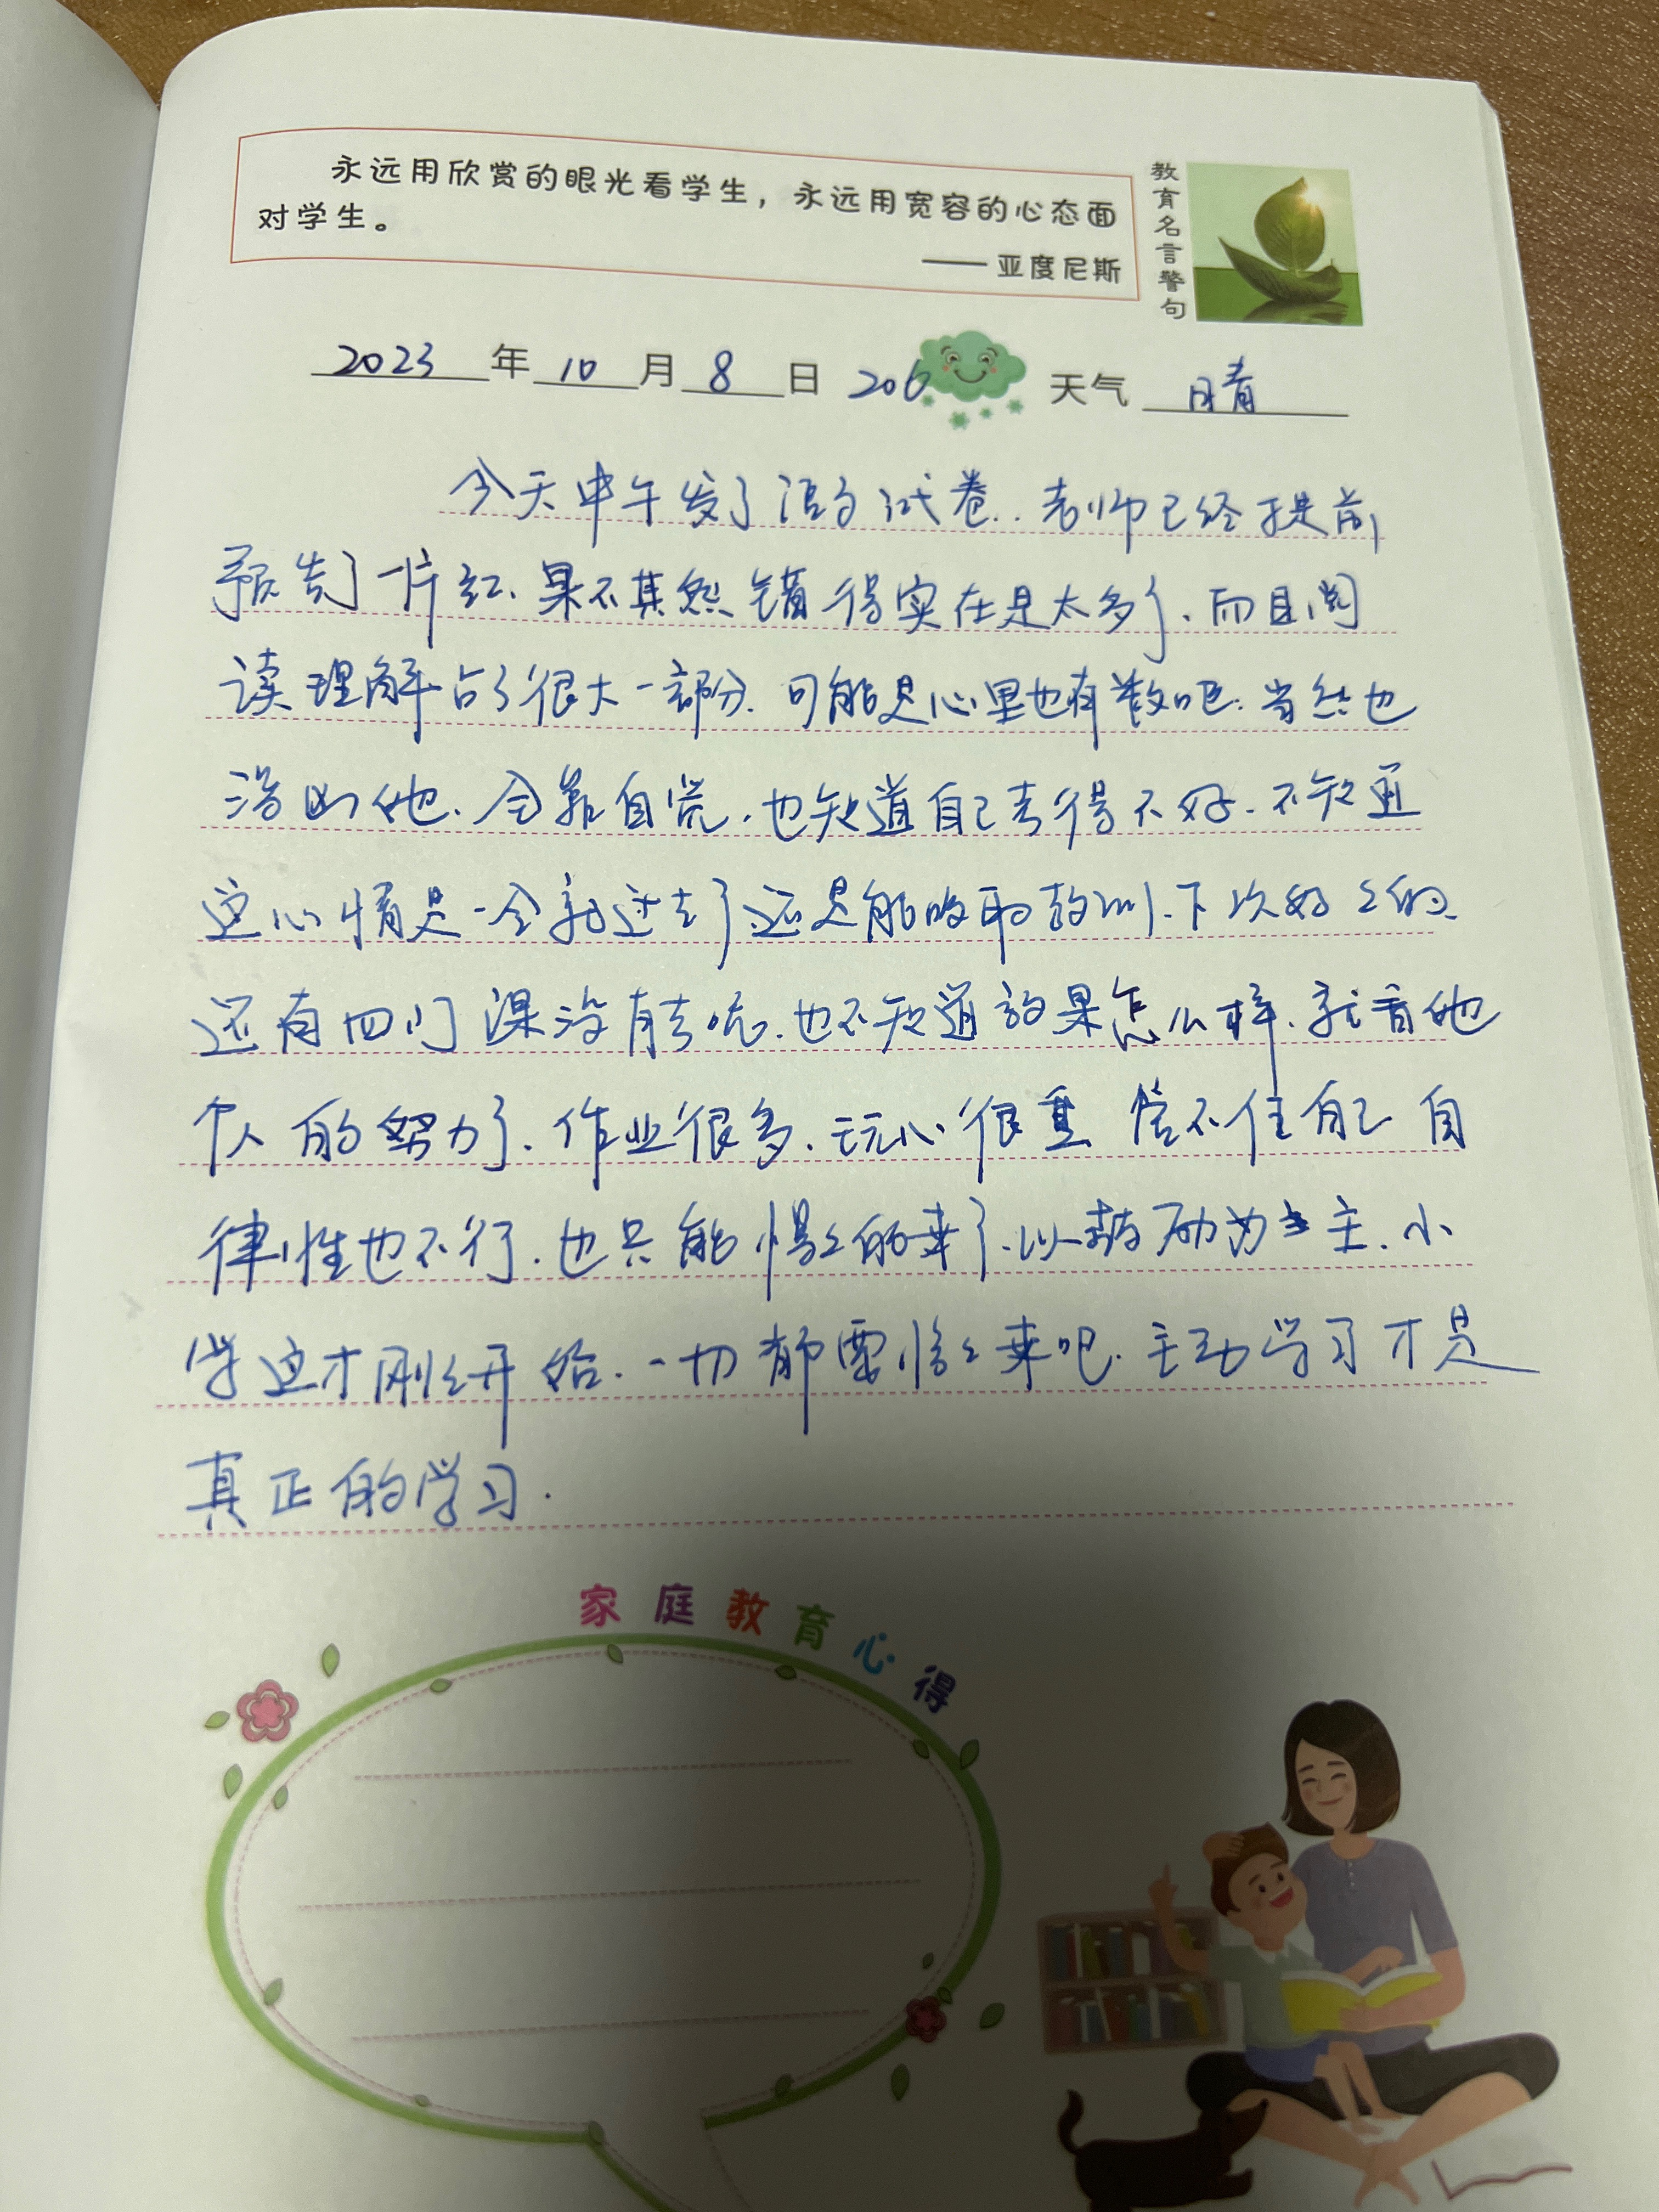 永远用欣赏的眼光看学生，永远用宽容的心态面
对学生。
——亚度尼斯
教育名言警句
2023年10月8日 206 天气 晴
今天中午发了语文试卷．老师已经提前
预告了一片红、果不其然错得实在是太多了、而且阅
读理解占了很大一部分．可能是心里也有数吧．当然也
没 他．全靠自觉．也知道自己考得不好．不知道
这心情是一会就过去了还是能吸取教训．下次好好的、
还有四门课没有考呢．也不知道效果怎么样．就看他
个人的努力了．作业很多．玩心很重 管不住自己 自
律性也不行．也只能慢慢的来了．以鼓励为主．小
学这才刚刚开始．一切都要慢慢来吧．主动学习才是
真正的学习．
家庭教育心得